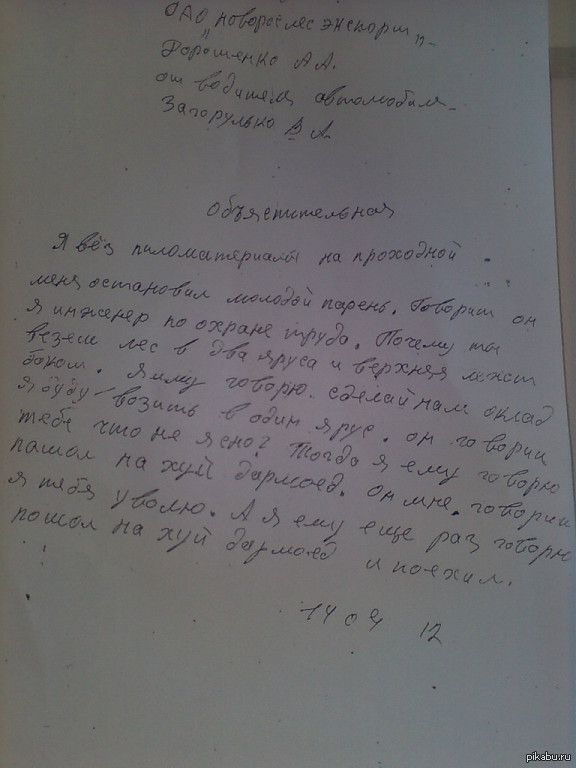 ОАО новорослесэкспорт
Дорошенко А А.
от водителя автомобиля
Загорулько В А.
Объяснительная
Я вёз пиломатериалы на проходной
меня остановил молодой парень. Говорит он
я инженер по охране труда. Почему ты
везеш лес в два яруса и верхняя лежит
боком. Я ему говорю. сделай нам оклад
я буду возить в один ярус. он говорит
тебе что не ясно? Тогда я ему говорю
пашол на хуй дармоед. он мне. говорит
я тебя уволю. А я ему еще раз говорю
пошол на хуй дармоед и поехал.
14 04 12
pikabu.ru